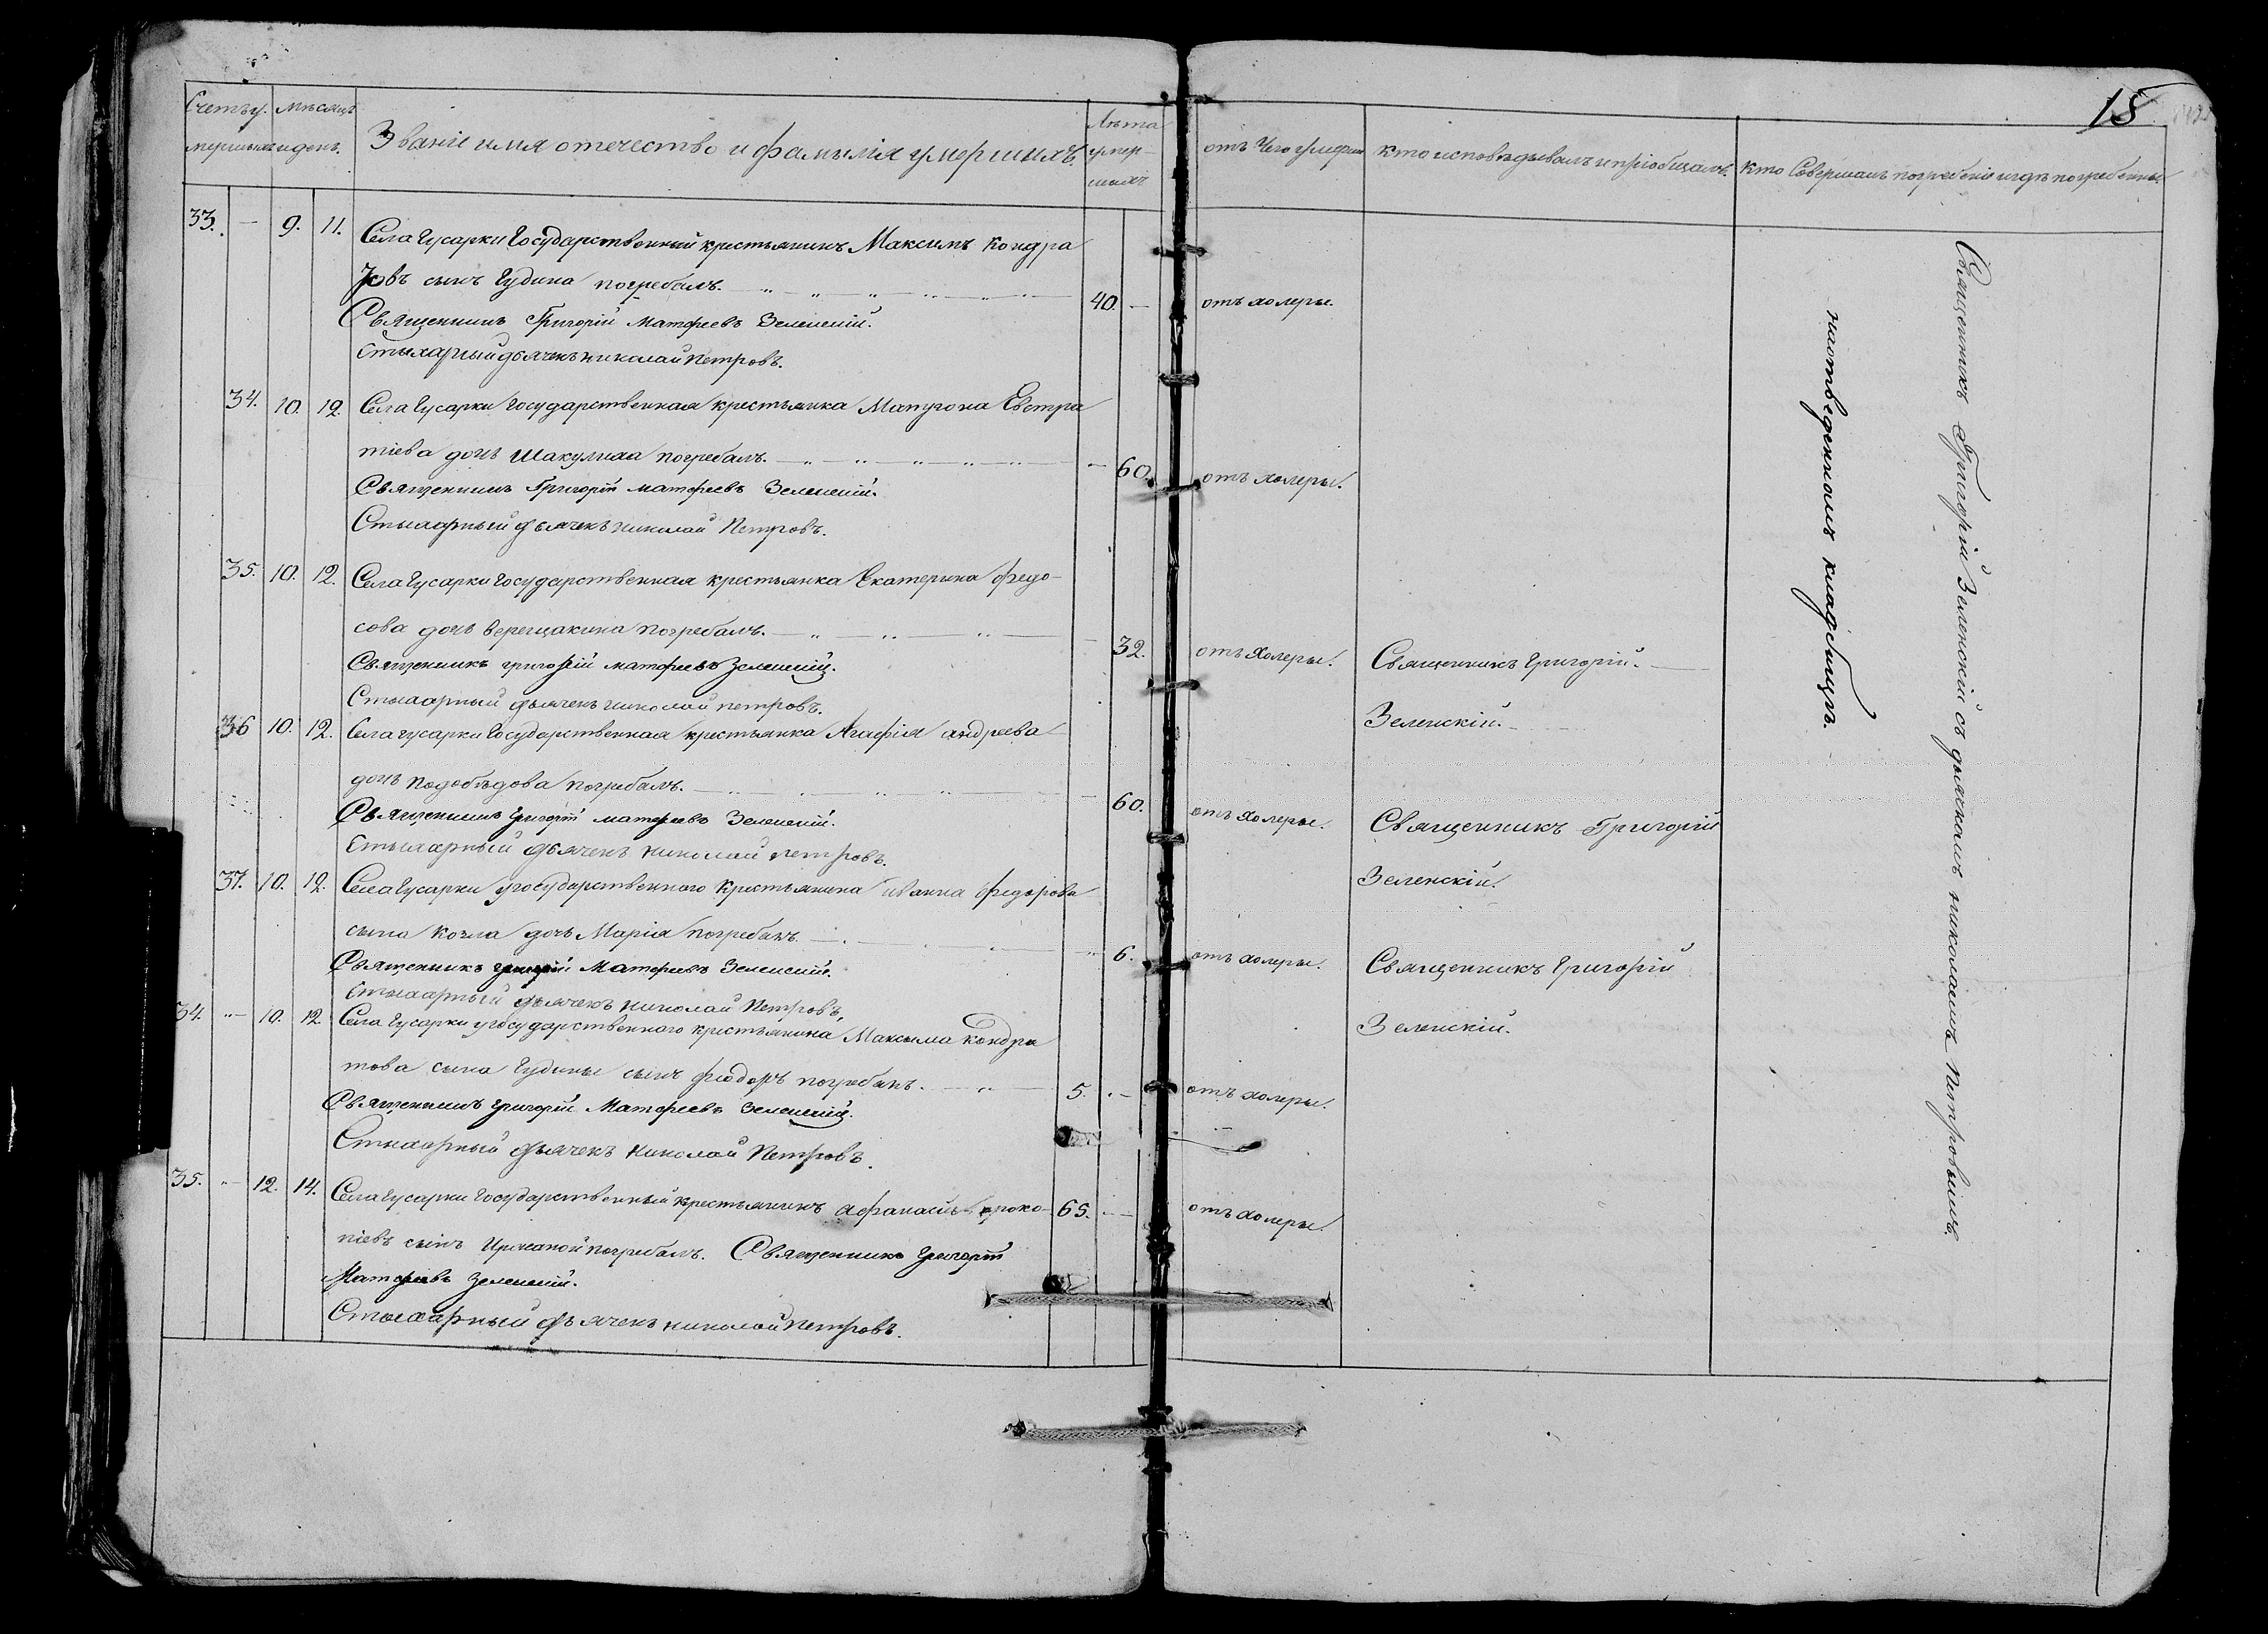 18
Счетъ у. мѣсяцъ
мершихъ и день.
Званіе имя отечество и фамылія умершихъ.
Лѣта
умер-
шихъ
отъ Чего умерли
кто исповѣдывалъ и пріобщалъ.
кто Совершалъ погребеніе и гдѣ погребенны.
33. — 9. 11. Села Гусарки Государственный крестьянинъ Максимъ Кондра
товъ сынъ Гудина погребалъ. 40. — отъ холеры.
Священникъ Григорій Матфеевъ Зеленскій.
Стихарный дьячекъ николай Петровъ.
34. 10. 12. Села Гусарки Государственная крестьянка Матрона Евстра
тіева дочь Шакулина погребалъ. — 60. отъ холеры.
Священникъ Григорій матфеевъ Зеленскій.
Стихарный дьячекъ николай Петровъ.
35. 10. 12. Села Гусарки Государственная крестьянка Екатерина федо-
сова дочь верещакина погребалъ. — 32. отъ Холеры. Священникъ Григорій.
Священникъ григорій матфеевъ Зеленскій.
Стихарный дьячекъ николай петровъ. Зеленскій.
36 10. 12. Села гусарки Государственная крестьянка Агафія андреева
дочь подобѣдова погребалъ. — 60. отъ Холеры. Священникъ Григорій
Священникъ Григорій матфеевъ Зеленскій.
Стихарный дьячекъ николай петровъ. Зеленскій.
37. 10. 12. Села Гусарки угосударственного крестьянина иванна федорова
сына козла дочь Марія погребанъ. 6. отъ холеры. Священникъ Григорій
Священникъ григорій Матфеевъ Зеленскій.
Стихарный дьячекъ николай Петровъ. Зеленскій.
34. — 10. 12. Села Гусарки угосударственного крестьянина Максыма Кондра
това сына Гудины сынъ феодоръ погребанъ. 5. — отъ холеры.
Священникъ Григорій Матфеевъ Зеленскій.
Стихарный дьячекъ николай Петровъ.
35. — 12. 14. Села Гусарки Государственный крестьянинъ афанасій проко- 65. — отъ холеры.
піевъ сынъ погребалъ. Священникъ Григорій
Матфеевъ Зеленскій.
Стихарный дьячекъ николай Петровъ.
Священникъ Григорій Зеленскій съ дьячкомъ николаимъ Петровымъ,
наотведенномъ кладбищѣ.